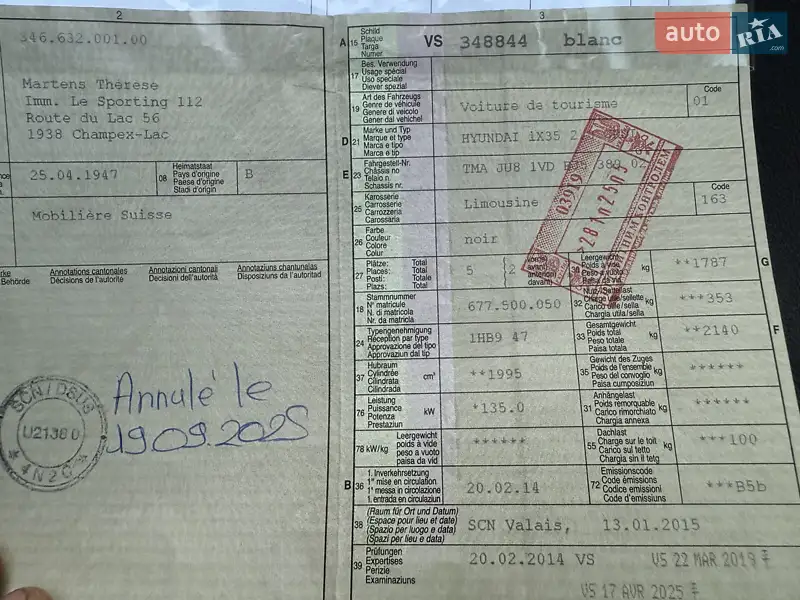 2
346.632.001.00
Martens Thérèse
Imm. Le Sporting 112
Route du Lac 56
1938 Champex-Lac
25.04.1947
08 Heimatstaat
Pays d'origine
Paese d'origine
Stadi d'origin
B
Mobilière Suisse
Annotations cantonales
Décisions de l'autorité
Annotazioni cantonali
Decisioni dell'autorità
Annotaziuns chantunalas
Disposiziuns da l'autoritad
Behörde
SCN/DSUS
U21380
4N20
Annulé le
19.09.2025
3
auto RIA
A 15 Schild
Plaque
Targa
Numer
VS 348844 blanc
17 Bes. Verwendung
Usage spécial
Uso speciale
Diever spezial
19 Art des Fahrzeugs
Genre de véhicule
Genere di veicolo
Gener dal vehichel
Voiture de tourisme
Code
01
D 21 Marke und Typ
Marque et type
Marca e tipo
Marca e tip
HYUNDAI iX35 2
E 23 Fahrgestell-Nr.
Châssis no
Telaio n.
Schassis nr.
TMA JU8 1VD 380 02
25 Karosserie
Carrosserie
Carrozzeria
Carossaria
Limousine
Code
163
26 Farbe
Couleur
Colore
Colur
noir
27 Plätze: Total
Places: Total
Posti: Totale
Plazs: Total
5
2
vorne
avant
davant
Leergewicht
Poids à vide
Peso a vuoto
Paisa da vid
kg
**1787
G
18 Stammnummer
N° matricule
N. di matricola
Nr. da matricla
677.500.050
32 Nutz-/Sattellast
Charge utile/sellette
Carico utile/sella
Chargia utila/sella
kg
***353
24 Typengenehmigung
Réception par type
Approvazione del tipo
Approvaziun dal tip
1HB9 47
33 Gesamtgewicht
Poids total
Peso totale
Paisa totala
kg
**2140
F
37 Hubraum
Cylindrée
Cilindrata
Cilindrada
cm³
**1995
35 Gewicht des Zuges
Poids de l'ensemble
Peso del convoglio
Paisa cumposiziun
kg
******
76 Leistung
Puissance
Potenza
Prestaziun
kW
*135.0
31 Anhängelast
Poids remorquable
Carico rimorchiato
Chargia annexa
kg
******
78 kW/kg Leergewicht
poids à vide
peso a vuoto
paisa da vid
******
55 Dachlast
Charge sur le toit
Carico sul tetto
Chargia sin il tetg
kg
***100
B 36 1. Inverkehrsetzung
1re mise en circulation
1a messa in circolazione
1. entrada en circulaziun
20.02.14
72 Emissionscode
Code émissions
Codice emissioni
Code d'emissiuns
***B5b
38 (Raum für Ort und Datum)
(Espace pour lieu et date)
(Spazio per luogo e data)
(Spazi per lieu e data)
SCN Valais, 13.01.2015
39 Prüfungen
Expertises
Perizie
Examinaziuns
20.02.2014 VS
VS 22 MAR 2019
VS 17 AVR 2025